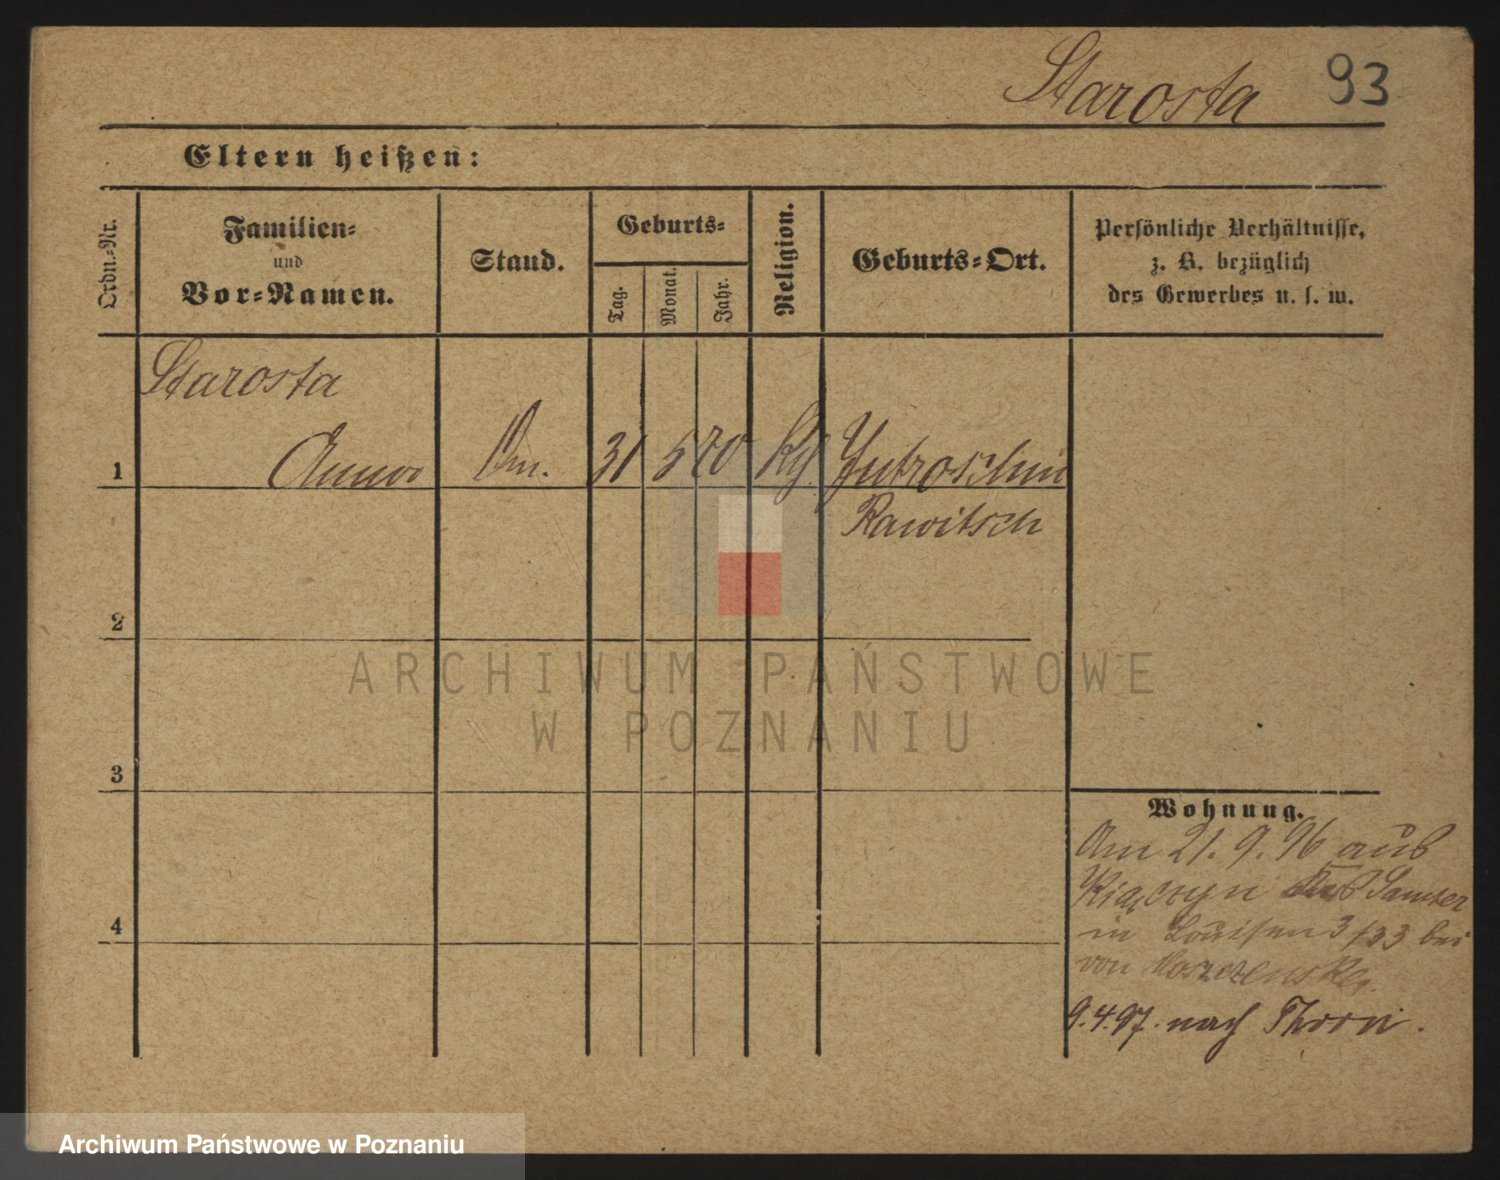 Starosta 93
Eltern heißen:
Ordn.-Nr.
Familien-
und
Vor-Namen.
Stand.
Geburts-
Tag.
Monat.
Jahr.
Religion.
Geburts-Ort.
Persönliche Verhältnisse,
z. B. bezüglich
des Gewerbes u. s. w.
Starosta
1 Anna 31 5 70 Jutroschin
Rawitsch
2
ARCHIWUM PAŃSTWOWE
W POZNANIU
3
Wohnung.
Am 21. 9. 96 aus
Samter
4
in Louisen 3/33 bei
von
9.4.97. nach Thorn.
Archiwum Państwowe w Poznaniu